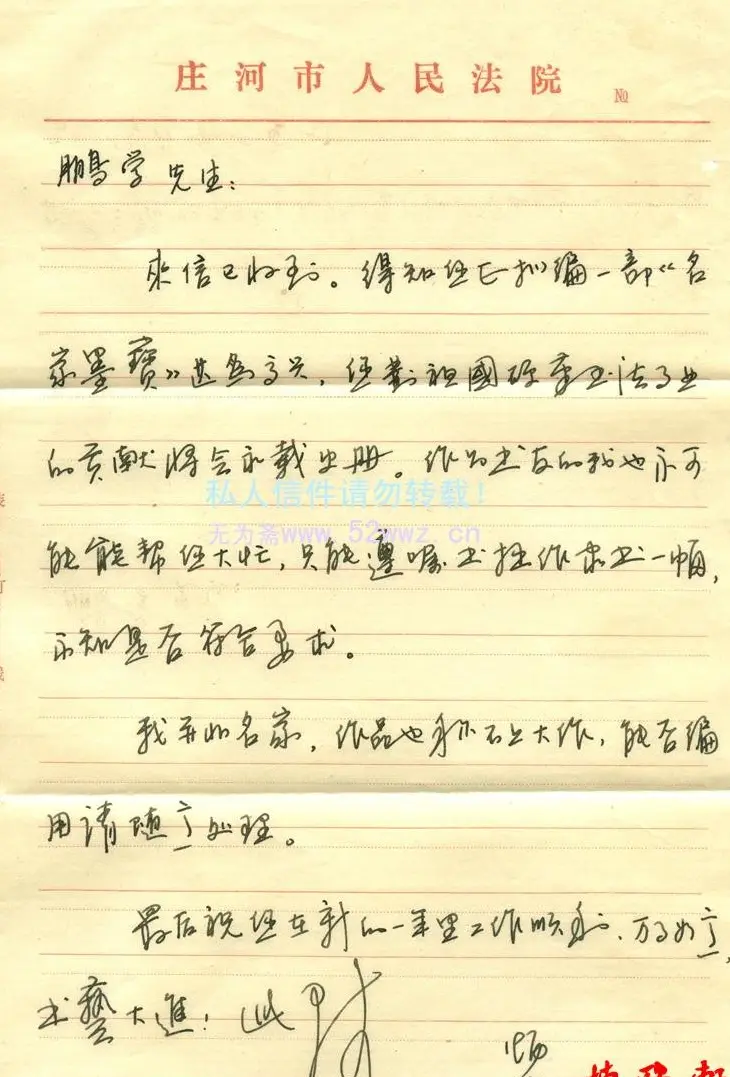 庄河市人民法院 №
鹏学先生：
来信已收到。得知您正拟编一部《名
家墨寶》甚为高兴，您對祖國硬筆书法事业
的贡献将会永载史册。作为书友的我也不可
私人信件请勿转载！
无为斋www.52wwz.cn
能帮您大忙，只能遵嘱书拙作一幅，
不知是否符合要求。
我并非名家，作品也称不上大作，能否编
用请随意处理。
最后祝您在新的一年里工作顺利、万事如意，
书藝大進！此